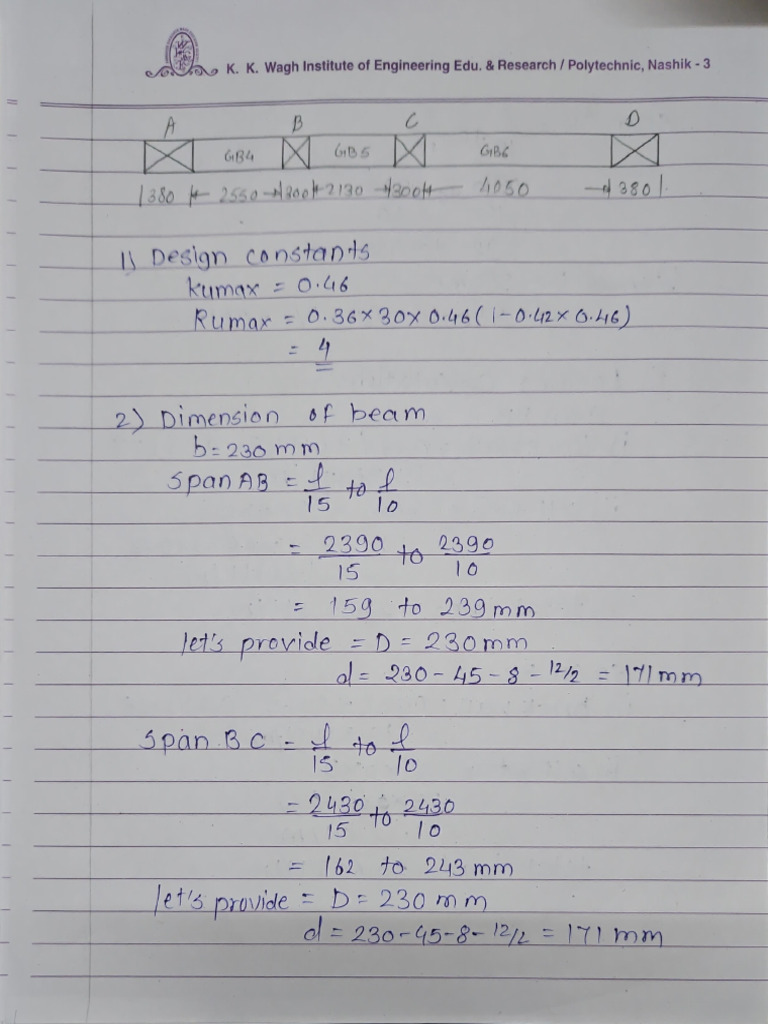 K. K. Wagh Institute of Engineering Edu. & Research / Polytechnic, Nashik - 3
A B C D
GB4 GB5 GB6
380 2550 300 2130 300 4050 380
1) Design constants
kumax = 0.46
Rumax = 0.36 × 30 × 0.46 (1 - 0.42 × 0.46)
= 4
2) Dimension of beam
b = 230 mm
Span AB = l/15 to l/10
= 2390/15 to 2390/10
= 159 to 239 mm
let's provide = D = 230 mm
d = 230 - 45 - 8 - 12/2 = 171 mm
Span BC = l/15 to l/10
= 2430/15 to 2430/10
= 162 to 243 mm
let's provide = D = 230 mm
d = 230 - 45 - 8 - 12/2 = 171 mm